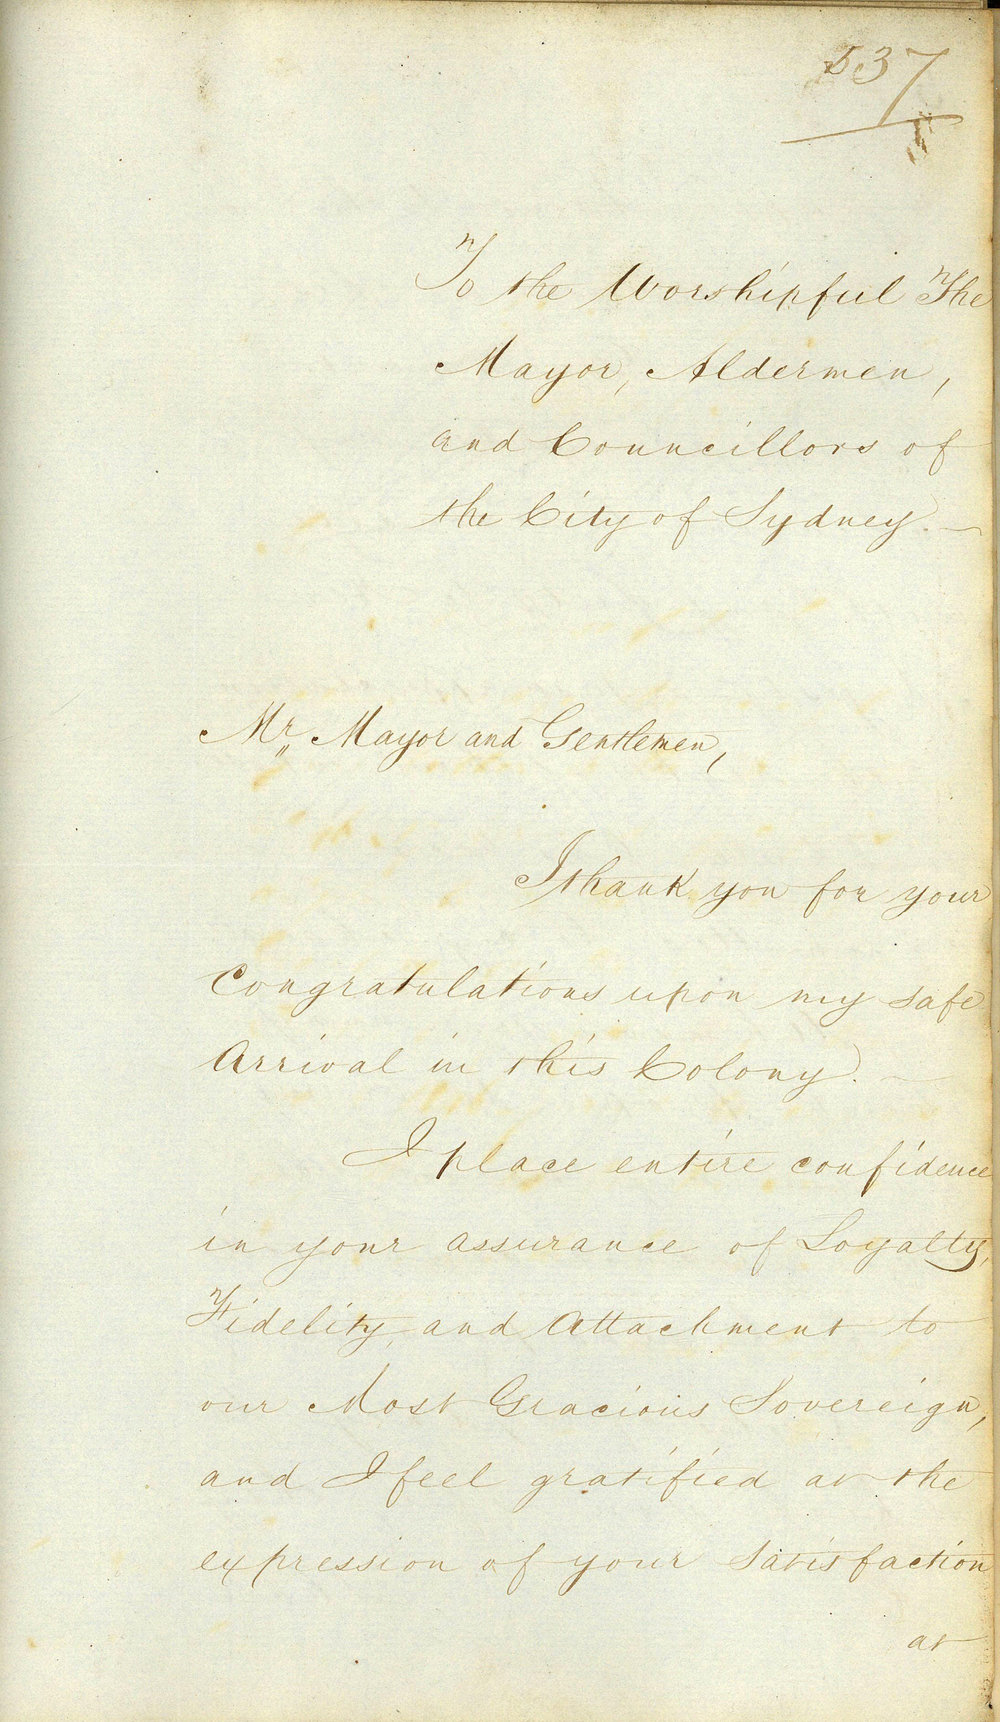 537
To the Worshipful The
Mayor, Aldermen,
and Councillors of
the City of Sydney. —
Mr. Mayor and Gentlemen,
I thank you for your
Congratulations upon my safe
Arrival in this Colony. —
I place entire confidence
in your assurance of Loyalty,
Fidelity, and Attachment to
our Most Gracious Sovereign,
and I feel gratified at the
expression of your Satisfaction
at